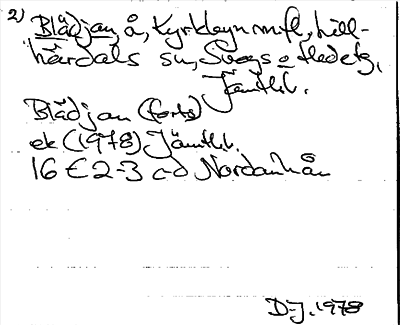 2) Blädjan, å, Kyrkbyn m fl, Lill-
härdals sn, Svegs o Hede tg,
Jämtl.
Blädjan (forts)
ek (1978) Jämtl.
16 E 2-3 c-d Nordanhån
D-J. 1978